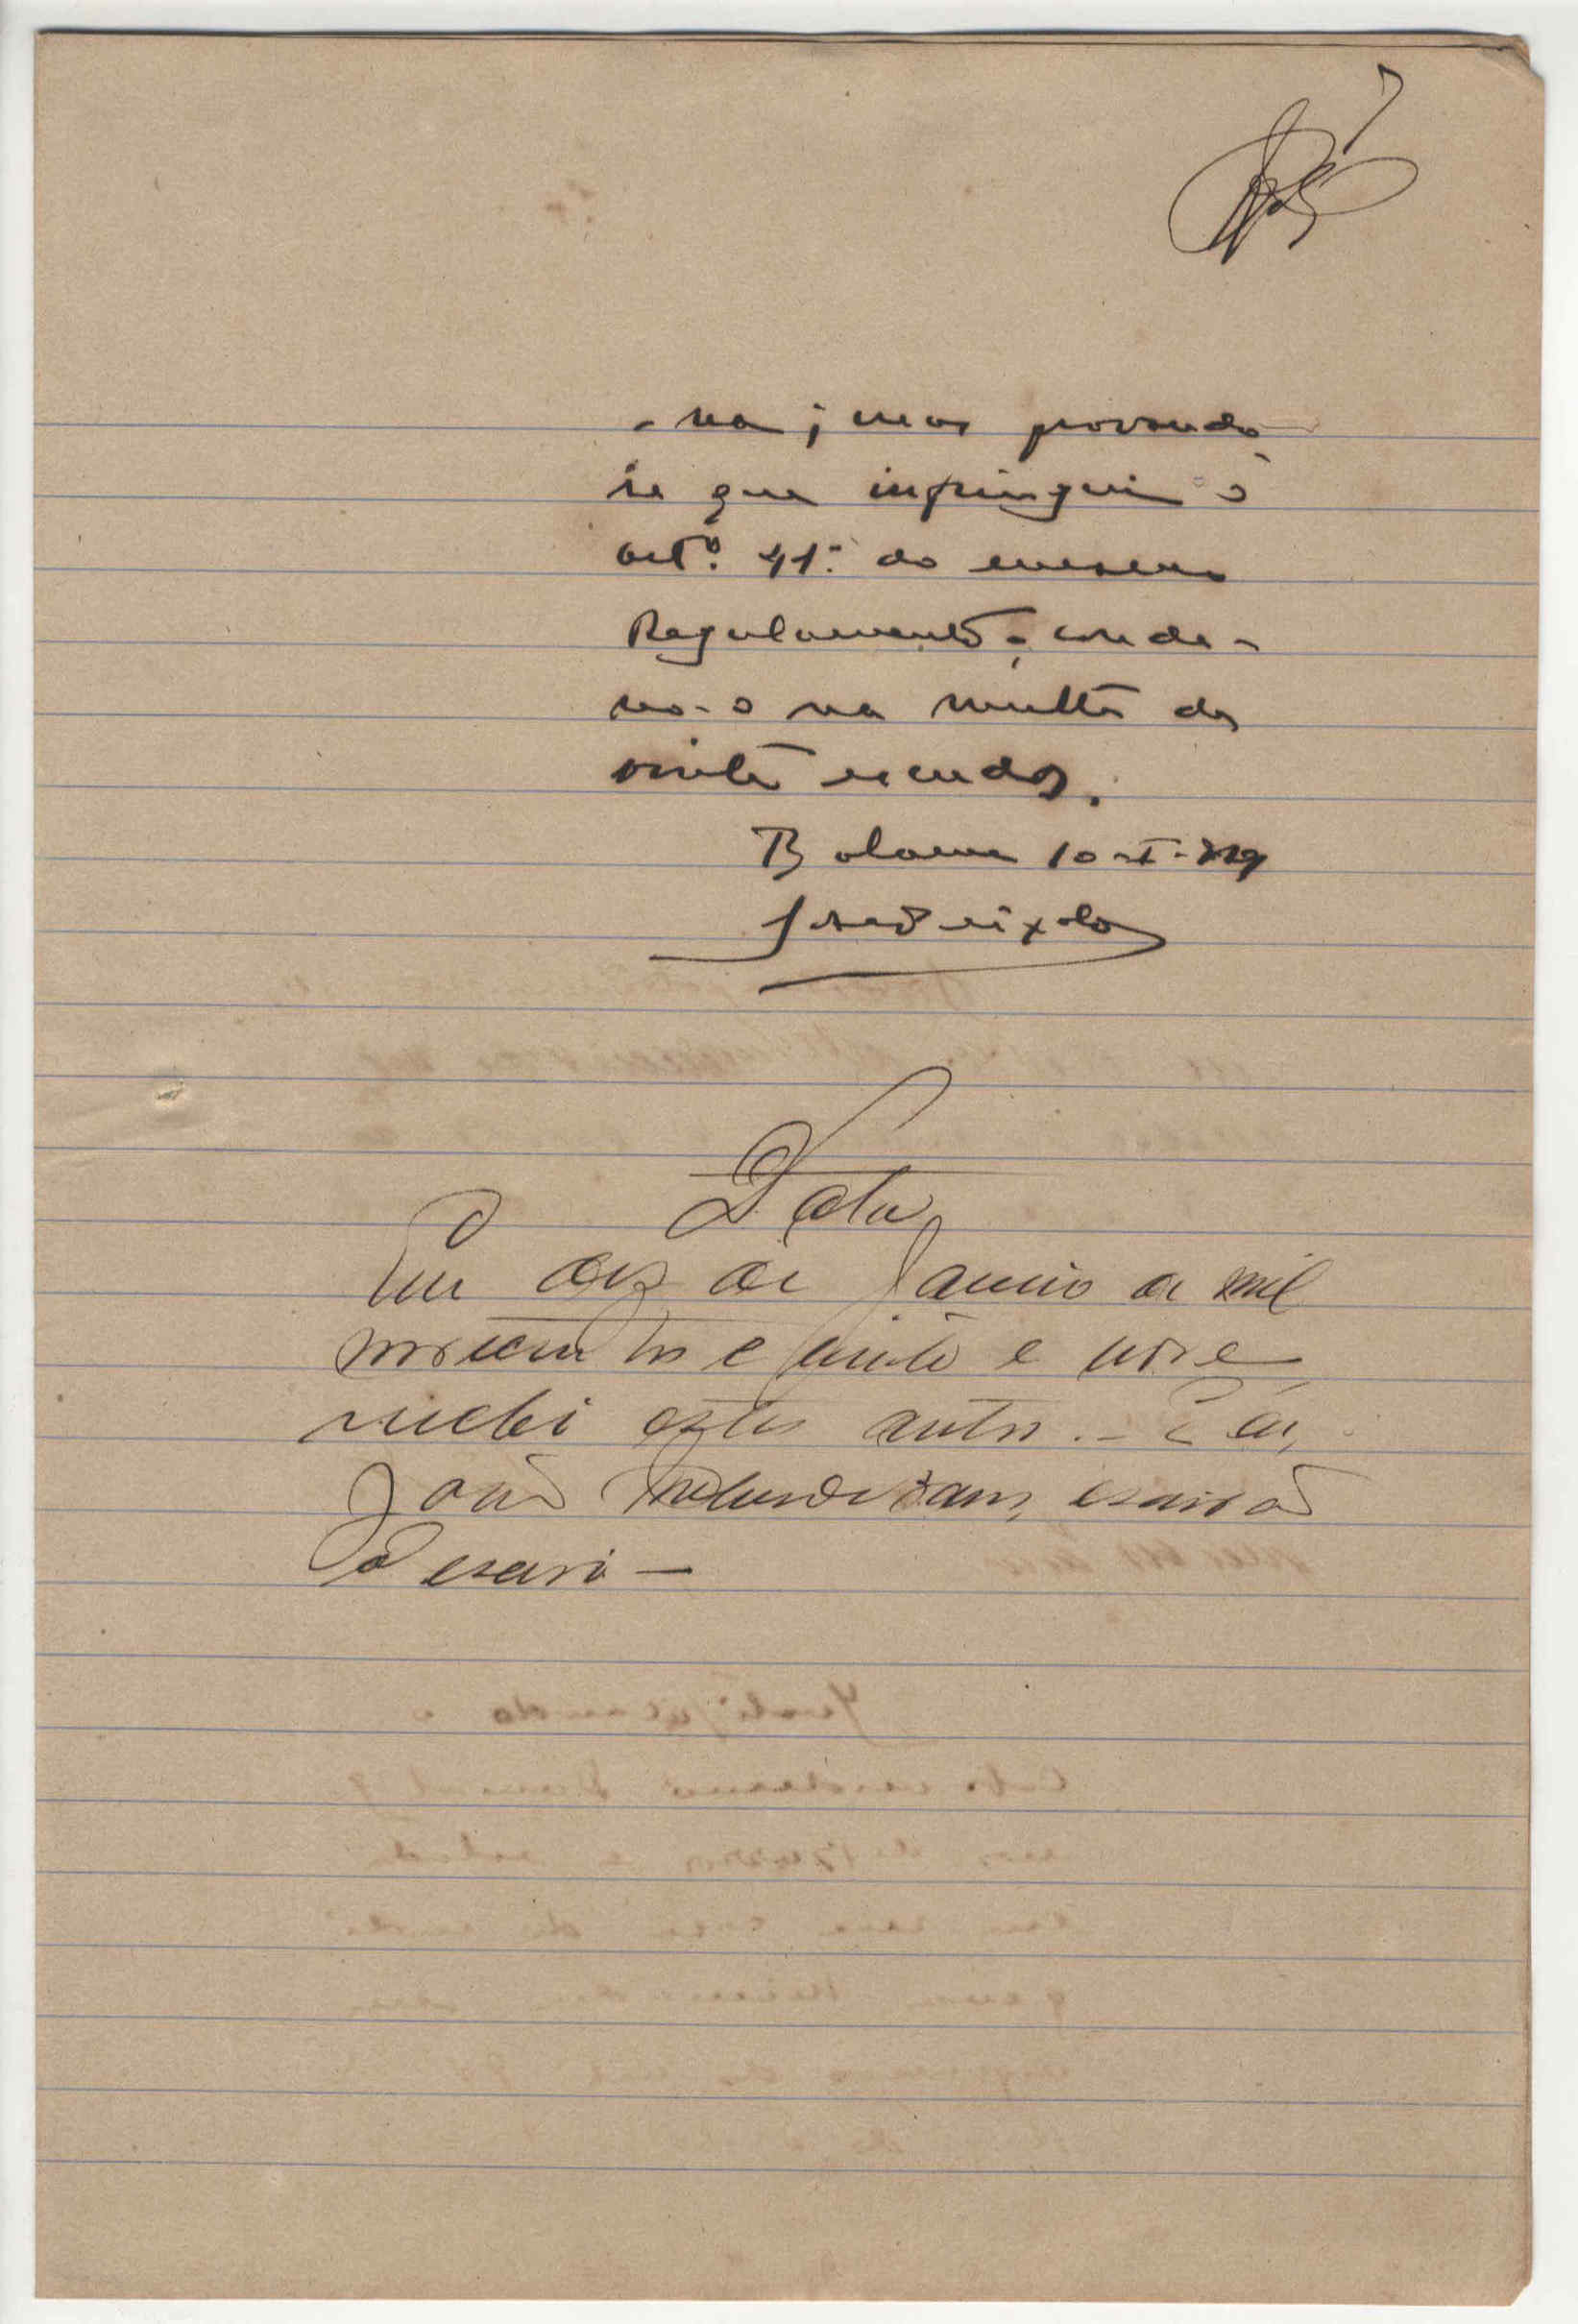 7
-na; mas provando
se que infringiu o
artº. 41º. do mesmo
Regulamento, conde-
no-o na multa de
vinte escudos.
Bolama 10-I-929
Data
Em dez de Janeiro de mil
novecentos e vinte e nove,
recebi estes autos. - E eu,
João escrivão
o escrevi -